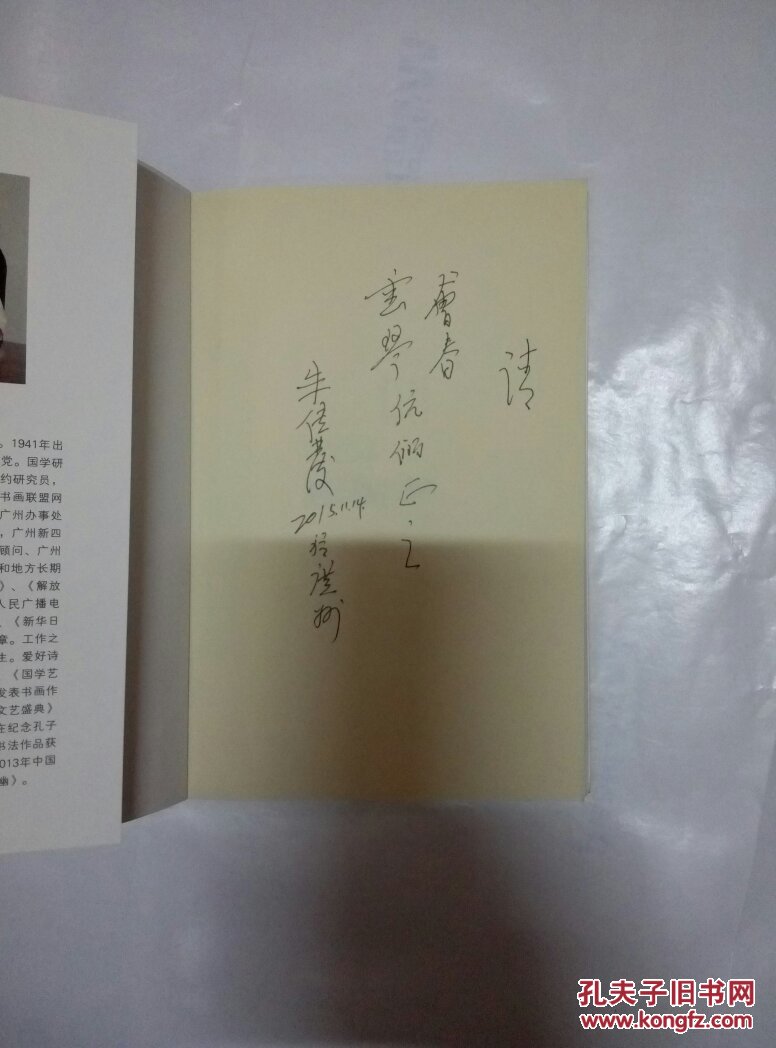 。1941年出
党。国学研
约研究员，
书画联盟网
广州办事处
，广州新四
顾问、广州
和地方长期
》、《解放
人民广播电
、《新华日
章。工作之
生。爱好诗
《国学艺
发表书画作
文艺盛典》
在纪念孔子
书法作品获
013年中国
幽》。
请
春
琴伉俪正之
朱
2015.11.14.
孔夫子旧书网
www.kongfz.com